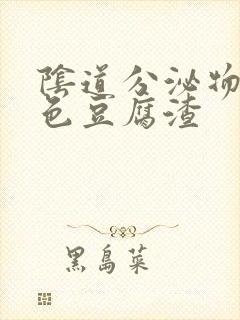 陰道分泌物
色豆腐渣
黑島菜